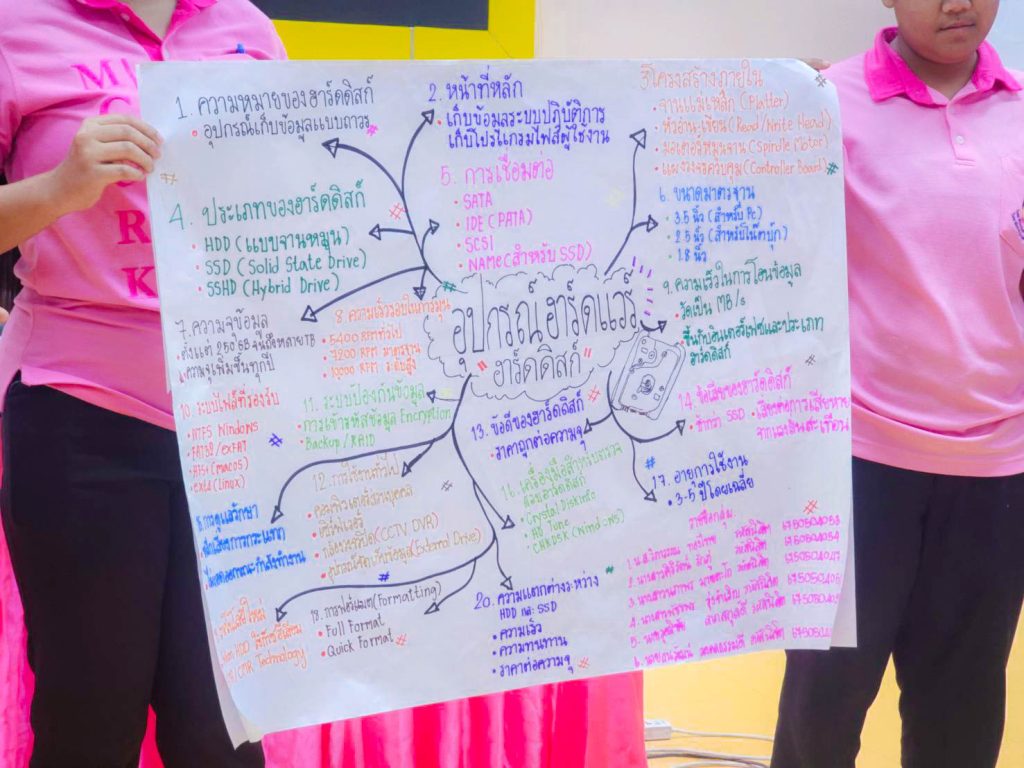 1. ความหมายของฮาร์ดดิสก์
• อุปกรณ์เก็บข้อมูลแบบถาวร
2. หน้าที่หลัก
• เก็บข้อมูลระบบปฏิบัติการ
เก็บโปรแกรมไฟล์ผู้ใช้งาน
3. โครงสร้างภายใน
• จานแม่เหล็ก (Platter)
• หัวอ่าน-เขียน (Read/Write Head)
• มอเตอร์หมุนจาน (Spindle Motor)
• แผงวงจรควบคุม (Controller Board)
4. ประเภทของฮาร์ดดิสก์
• HDD (แบบจานหมุน)
• SSD (Solid State Drive)
• SSHD (Hybrid Drive)
5. การเชื่อมต่อ
• SATA
• IDE (PATA)
• SCSI
• NAME (สำหรับ SSD)
6. ขนาดมาตรฐาน
• 3.5 นิ้ว (สำหรับ Pc)
• 2.5 นิ้ว (สำหรับโน๊ตบุ๊ก)
• 1.8 นิ้ว
อุปกรณ์ฮาร์ดแวร์
"ฮาร์ดดิสก์"
7. ความจุข้อมูล
• ตั้งแต่ 250 GB จนถึงหลาย TB
• ความจุเพิ่มขึ้นทุกปี
8. ความเร็วรอบในการหมุน
• 5400 RPM ทั่วไป
• 7200 RPM มาตรฐาน
• 10,000 RPM ระดับสูง
9. ความเร็วในการโอนข้อมูล
• วัดเป็น MB/s
• ขึ้นกับอินเตอร์เฟซและประเภท
ฮาร์ดดิสก์
10. ระบบไฟล์ที่รองรับ
• NTFS Windows
• FAT32 / exFAT
• HFS+ (macOS)
• ext4 (Linux)
11. ระบบป้องกันข้อมูล
• การเข้ารหัสข้อมูล Encryption
• Backup / RAID
12. การใช้งานทั่วไป
• คอมพิวเตอร์ส่วนบุคคล
• เซิร์ฟเวอร์
• กล้องวงจรปิด (CCTV DVR)
• อุปกรณ์จัดเก็บข้อมูล (External Drive)
13. ข้อดีของฮาร์ดดิสก์
• ราคาถูกต่อความจุ
14. ข้อเสียของฮาร์ดดิสก์
• ช้ากว่า SSD • เสี่ยงต่อการเสียหาย
จากแรงสั่นสะเทือน
การดูแลรักษา
• หลีกเลี่ยงการกระแทก
16. เครื่องมือตรวจสอบ
ฮาร์ดดิสก์
• Crystal DiskInfo
• HD Tune
• CHKDSK (Windows)
17. อายุการใช้งาน
• 3-5 ปี โดยเฉลี่ย
18. การฟอร์แมต (Formatting)
• Full Format
• Quick Format
เทคโนโลยีใหม่
Technology
20. ความแตกต่างระหว่าง
HDD และ SSD
• ความเร็ว
• ความทนทาน
• ราคาต่อความจุ
รายชื่อกลุ่ม